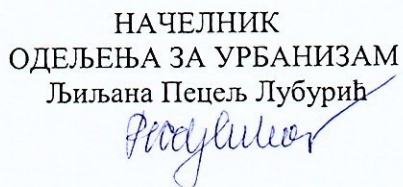 НАЧЕЛНИК
ОДЕЉЕЊА ЗА УРБАНИЗАМ
Љиљана Пецељ Лубурић